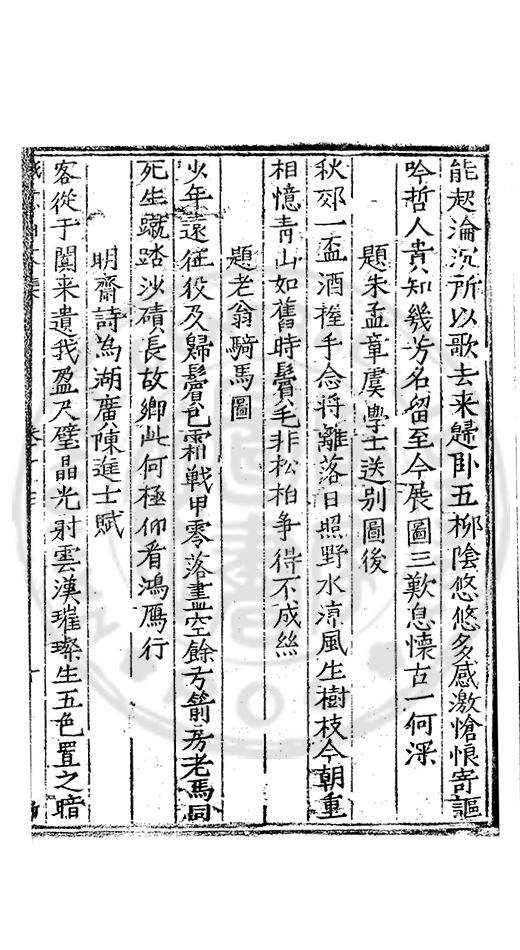 能起淪沉所以歌去来歸卧五柳陰悠悠多感激愴悢寄謳
吟哲人貴知幾芳名留至今展圖三歎息懷古一何深
題朱孟章虞學士送别圖後
秋郊一盃酒握手念将離落日照野水凉風生樹枝今朝重
相憶青山如舊時鬢毛非松柏争得不成絲
題老翁騎馬圖
少年遠征役及歸鬢已霜戦甲零落盡空餘方箭房老馬同
死生蹴踏沙磧長故鄉此何極仰看鴻鴈行
明齋詩為湖廣陳進士賦
客從于闐来遺我盈尺璧晶光射雲漢璀璨生五色置之暗